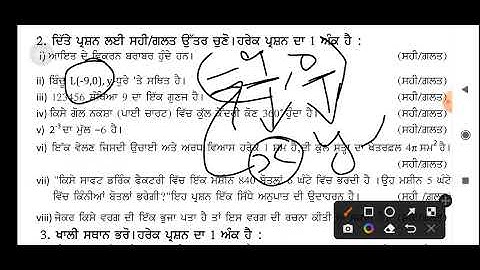 2. ਦਿੱਤੇ ਪ੍ਰਸ਼ਨ ਲਈ ਸਹੀ/ਗਲਤ ਉੱਤਰ ਚੁਣੋ।ਹਰੇਕ ਪ੍ਰਸ਼ਨ ਦਾ 1 ਅੰਕ ਹੈ :
i) ਆਇਤ ਦੇ ਵਿਕਰਨ ਬਰਾਬਰ ਹੁੰਦੇ ਹਨ। (ਸਹੀ/ਗਲਤ)
ii) ਬਿੰਦੂ L(-9,0), y ਧੁਰੇ 'ਤੇ ਸਥਿਤ ਹੈ। (ਸਹੀ/ਗਲਤ)
iii) 123456 ਸੰਖਿਆ 9 ਦਾ ਇੱਕ ਗੁਣਜ ਹੈ। (ਸਹੀ/ਗਲਤ)
iv) ਕਿਸੇ ਗੋਲ ਨਕਸ਼ਾ (ਪਾਈ ਚਾਰਟ) ਵਿੱਚ ਕੁੱਲ ਕੇਂਦਰੀ ਕੋਣ 360° ਹੁੰਦਾ ਹੈ। (ਸਹੀ/ਗਲਤ)
v) ਦਾ ਮੁੱਲ -6 ਹੈ। (ਸਹੀ/ਗਲਤ)
vi) ਇੱਕ ਵੇਲਣ ਜਿਸਦੀ ਉਚਾਈ ਅਤੇ ਅਰਧ ਵਿਆਸ ਹਰੇਕ 1 ਸਮ ਹੈ,ਦੀ ਕੁੱਲ ਸਤ੍ਹਾ ਦਾ ਖੇਤਰਫਲ 4π ਸਮ² ਹੈ।
(ਸਹੀ/ਗਲਤ)
vii) "ਕਿਸੇ ਸਾਫਟ ਡਰਿੰਕ ਫੈਕਟਰੀ ਵਿੱਚ ਇੱਕ ਮਸ਼ੀਨ 840 ਬੋਤਲਾਂ 6 ਘੰਟੇ ਵਿੱਚ ਭਰਦੀ ਹੈ ।ਉਹ ਮਸ਼ੀਨ 5 ਘੰਟੇ
ਵਿੱਚ ਕਿੰਨੀਆਂ ਬੋਤਲਾਂ ਭਰੇਗੀ?"ਇਹ ਪ੍ਰਸ਼ਨ ਇੱਕ ਸਿੱਧੇ ਅਨੁਪਾਤ ਦੀ ਉਦਾਹਰਨ ਹੈ। (ਸਹੀ /ਗਲਤ)
viii) ਜੇਕਰ ਕਿਸੇ ਵਰਗ ਦੀ ਇੱਕ ਭੁਜਾ ਪਤਾ ਹੈ ਤਾਂ ਇਸ ਵਰਗ ਦੀ ਰਚਨਾ ਕੀਤੀ
3. ਖਾਲੀ ਸਥਾਨ ਭਰੋ।ਹਰੇਕ ਪ੍ਰਸ਼ਨ ਦਾ 1 ਅੰਕ ਹੈ :